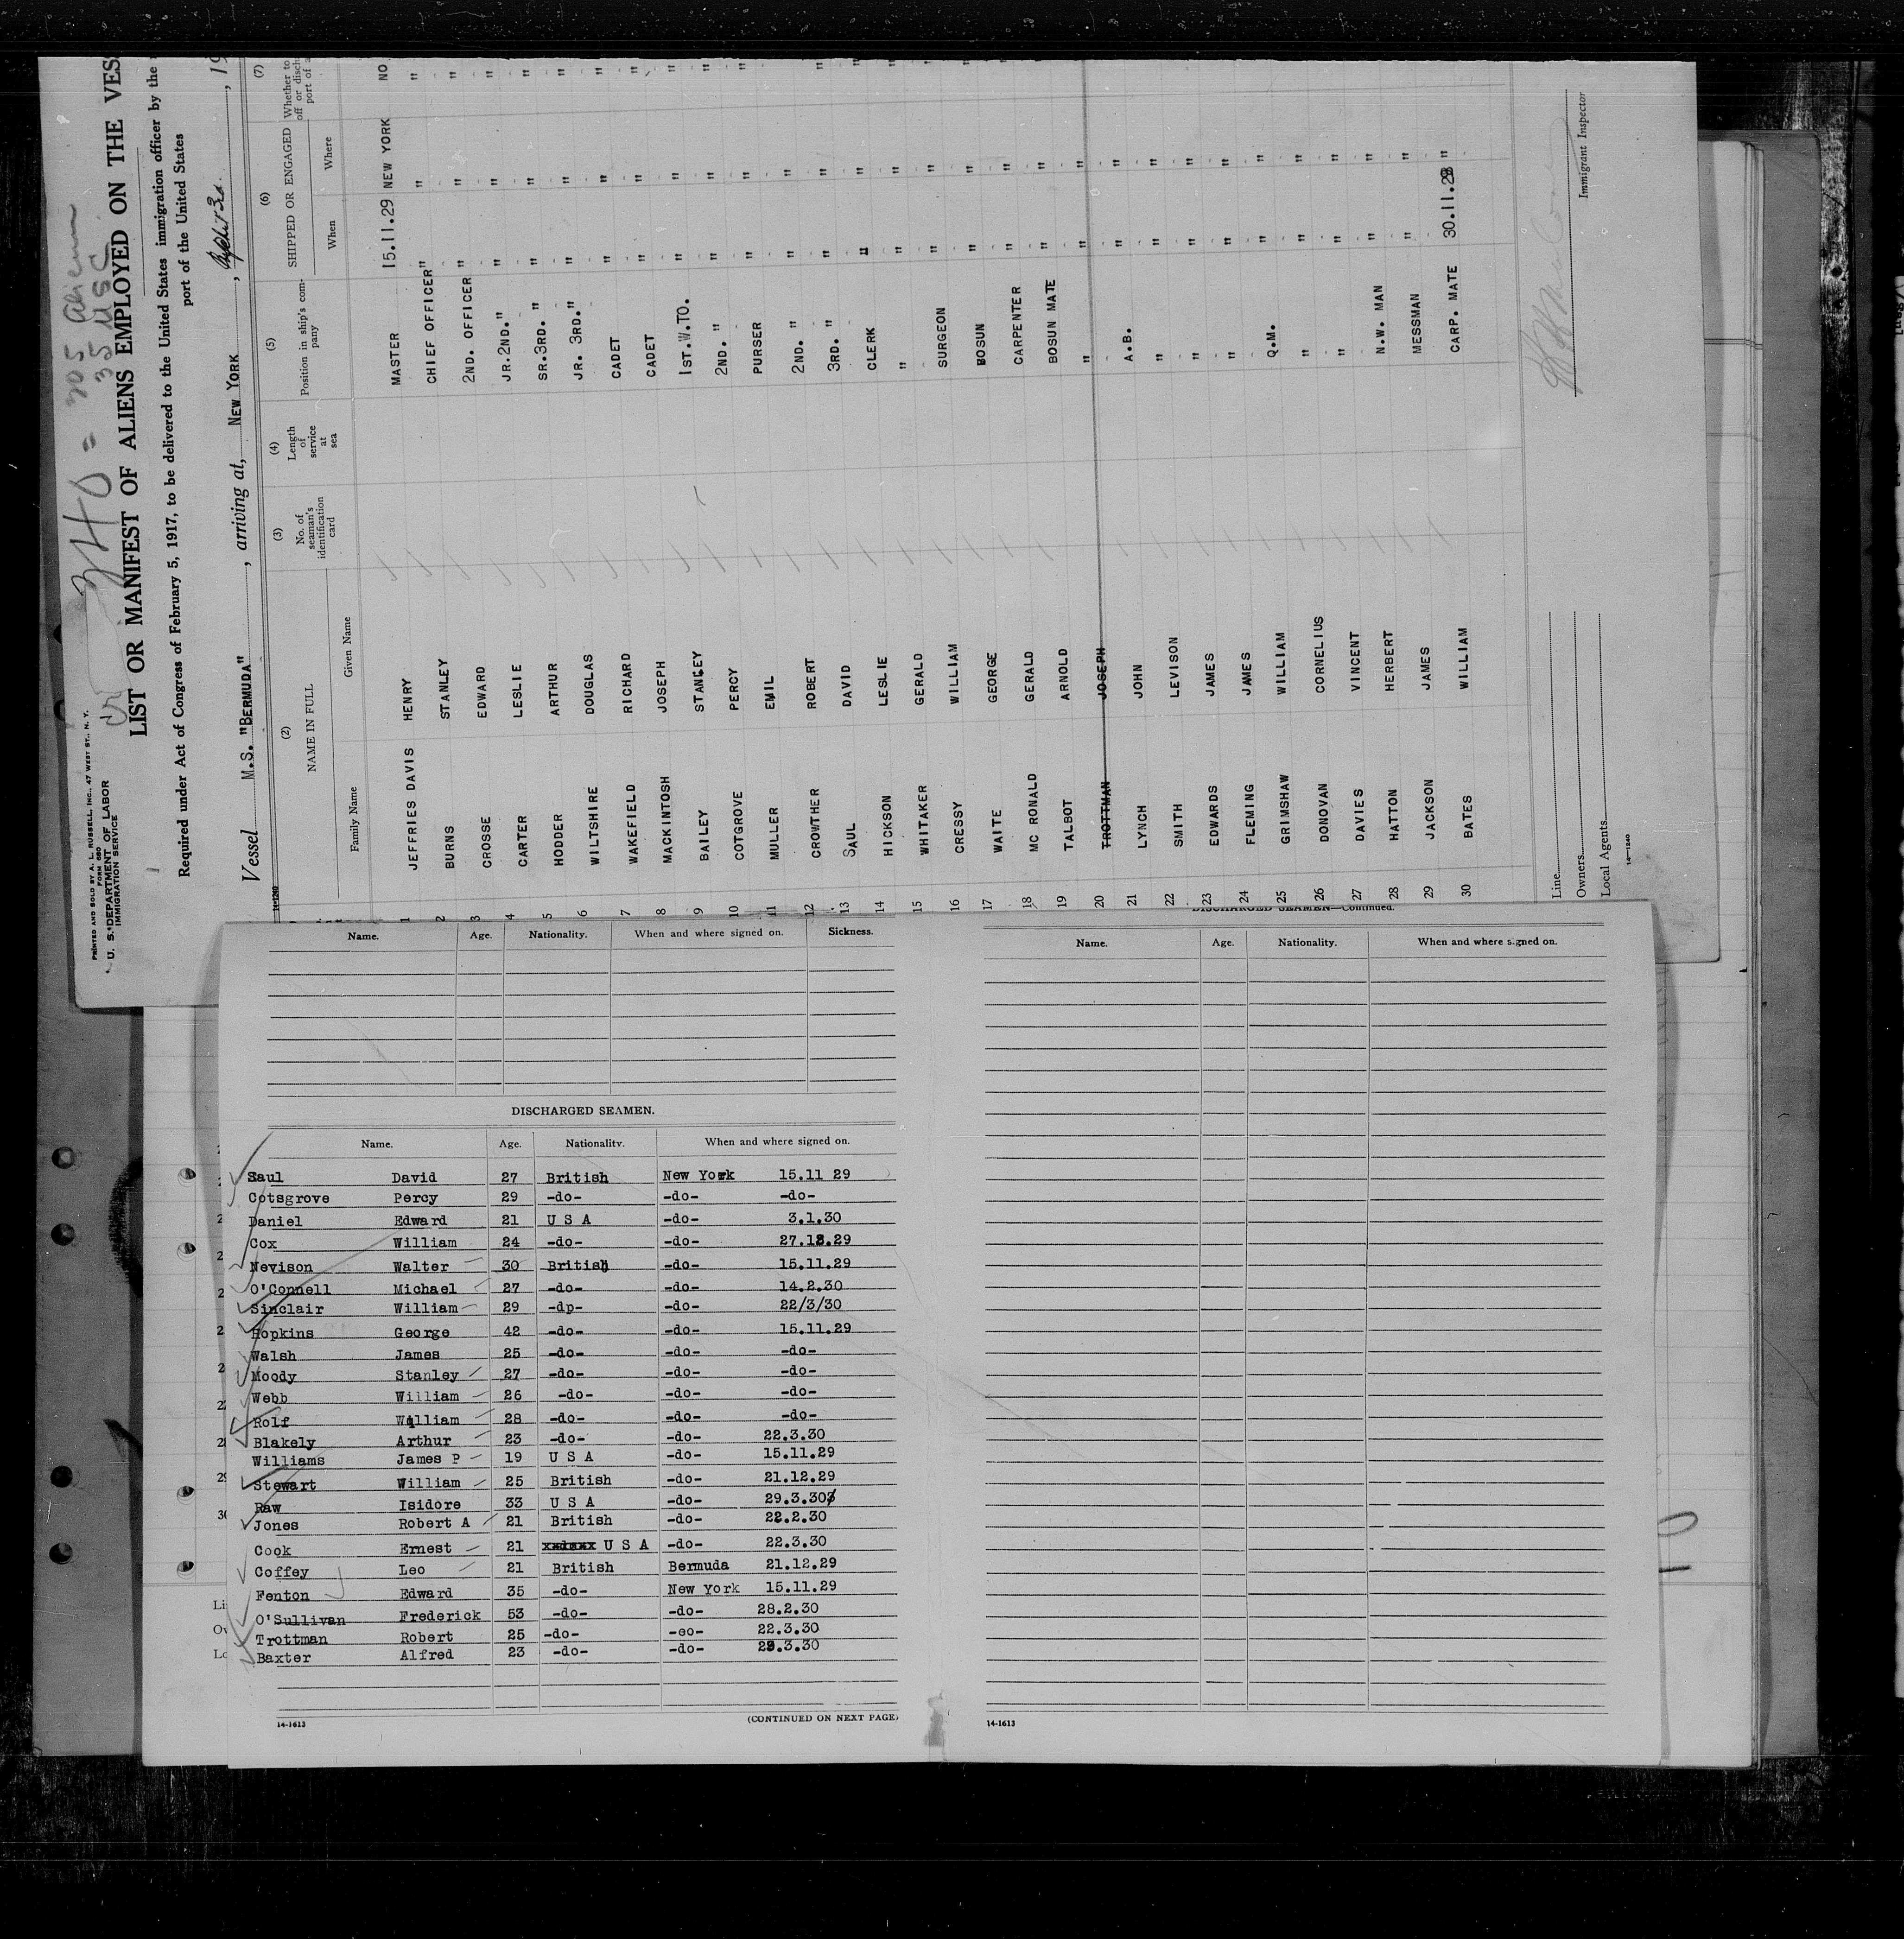 PRINTED AND SOLD BY A. L. RUSSELL, INC., 47 WEST ST., N. Y.
FORM 680
U. S. DEPARTMENT OF LABOR
IMMIGRATION SERVICE
340 = 305 Aliens
35 USC
LIST OR MANIFEST OF ALIENS EMPLOYED ON THE VES
Required under Act of Congress of February 5, 1917, to be delivered to the United States immigration officer by the
port of the United States
Vessel M.S. "BERMUDA", arriving at, NEW YORK, , 19
14-1240
(2) (3) (4) (5) (6) (7)
NAME IN FULL No. of seaman's identification card Length of service at sea Position in ship's company SHIPPED OR ENGAGED Whether to
off or disch
port of a
Family Name Given Name When Where
1 JEFFRIES DAVIS HENRY MASTER 15.11.29 NEW YORK NO
2 BURNS STANLEY CHIEF OFFICER " " "
3 CROSSE EDWARD 2ND. OFFICER " " "
4 CARTER LESLIE JR.2ND. " " " "
5 HODDER ARTHUR SR.3RD. " " " "
6 WILTSHIRE DOUGLAS JR. 3RD. " " " "
7 WAKEFIELD RICHARD CADET " " "
8 MACKINTOSH JOSEPH CADET " " "
9 BAILEY STANLEY 1ST.W.TO. " " "
10 COTGROVE PERCY 2ND. " " " "
11 MULLER EMIL PURSER " " "
12 CROWTHER ROBERT 2ND. " " "
13 SAUL DAVID 3RD. " " " "
14 HICKSON LESLIE CLERK " " "
15 WHITAKER GERALD " " " "
16 CRESSY WILLIAM SURGEON " " "
17 WAITE GEORGE BOSUN " " "
18 MC RONALD GERALD CARPENTER " " "
19 TALBOT ARNOLD BOSUN MATE " " "
20 TROTTMAN JOSEPH " " "
21 LYNCH JOHN A.B. " "
22 SMITH LEVISON " " "
23 EDWARDS JAMES " " "
24 FLEMING JAMES " " "
25 GRIMSHAW WILLIAM Q.M. " "
26 DONOVAN CORNELIUS " " "
27 DAVIES VINCENT " " "
28 HATTON HERBERT N.W. MAN " "
29 JACKSON JAMES MESSMAN " "
30 BATES WILLIAM CARP. MATE 30.11.29 "
Line
Owners
Local Agents
14-1240
Immigrant Inspector
Name. Age. Nationality. When and where signed on. Sickness.
DISCHARGED SEAMEN.
Name. Age. Nationality. When and where signed on.
Saul David 27 British New York 15.11 29
Cotsgrove Percy 29 -do- -do- -do-
Daniel Edward 21 U S A -do- 3.1.30
Cox William 24 -do- -do- 27.12.29
Nevison Walter 30 British -do- 15.11.29
O'Connell Michael 27 -do- -do- 14.2.30
Sinclair William 29 -dp- -do- 22/3/30
Hopkins George 42 -do- -do- 15.11.29
Walsh James 25 -do- -do- -do-
Moody Stanley 27 -do- -do- -do-
Webb William 26 -do- -do- -do-
Rolf William 28 -do- -do- -do-
Blakely Arthur 23 -do- -do- 22.3.30
Williams James P 19 U S A -do- 15.11.29
Stewart William 25 British -do- 21.12.29
Raw Isidore 33 U S A -do- 29.3.30
Jones Robert A 21 British -do- 22.2.30
Cook Ernest 21 U S A -do- 22.3.30
Coffey Leo 21 British Bermuda 21.12.29
Fenton Edward 35 -do- New York 15.11.29
O'Sullivan Frederick 53 -do- -do- 28.2.30
Trottman Robert 25 -do- -eo- 22.3.30
Baxter Alfred 23 -do- -do- 29.3.30
14-1613 (CONTINUED ON NEXT PAGE)
DISCHARGED SEAMEN—Continued.
Name. Age. Nationality. When and where signed on.
14-1613